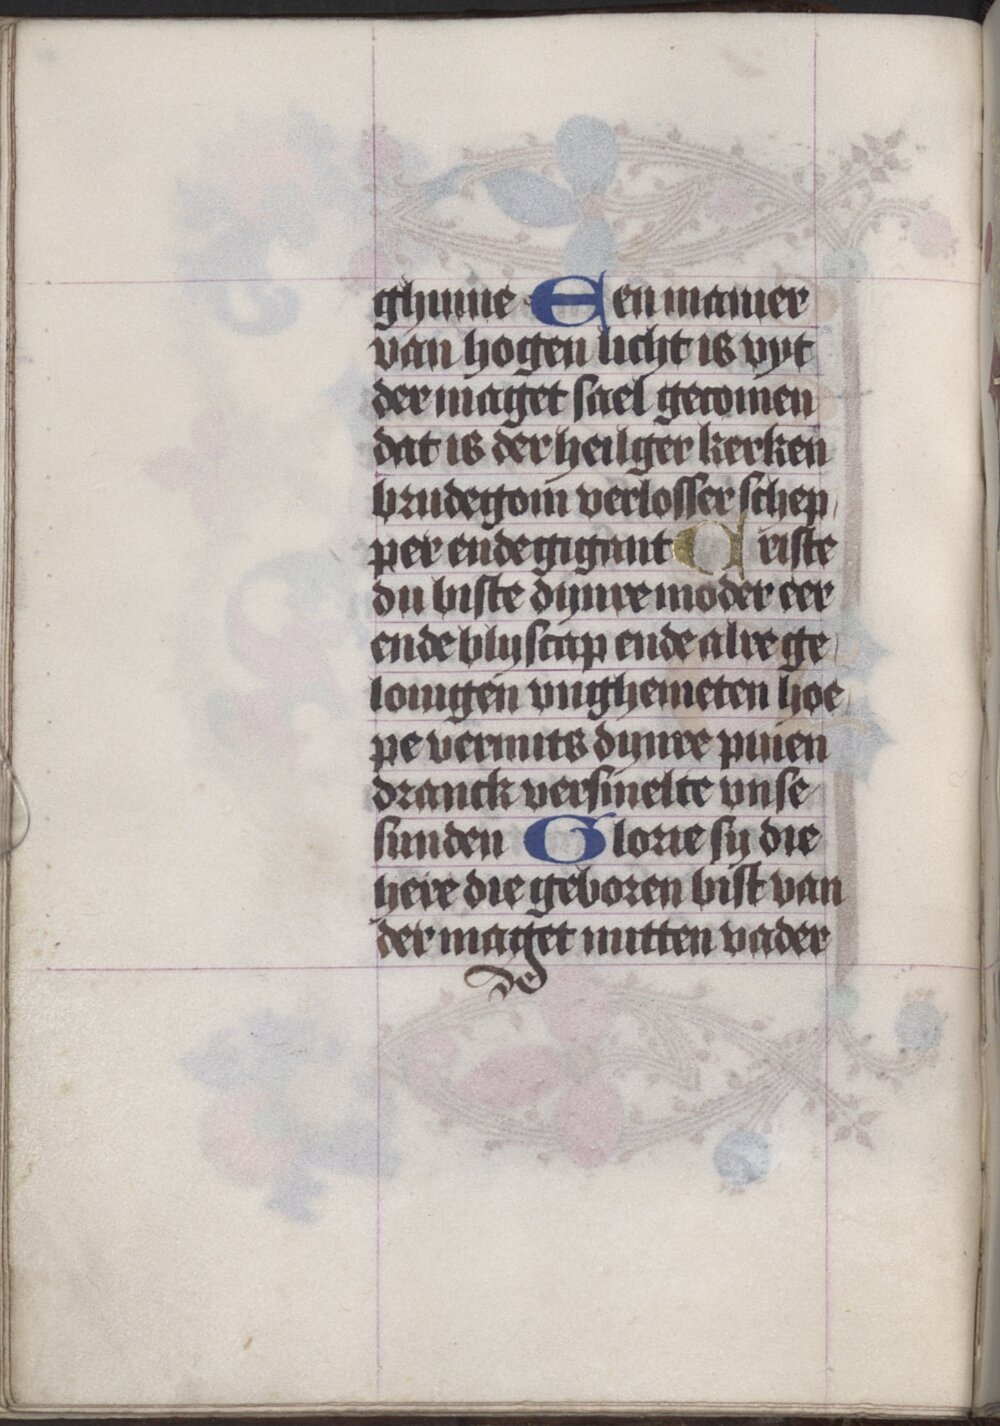 ghinne Een manier
van hogen licht is vyt
der maget sael gecomen
dat is der heilger kerken
brudegom verlosser schep
per ende gigant Criste
du biste dynre moder eer
ende blyscap ende alre ge
louigen vnghemeten hoe
pe vermits dynre pinen
dranck versmelte vnse
sunden Glorie sy die
here die geboren bist van
der maget mitten vader
de